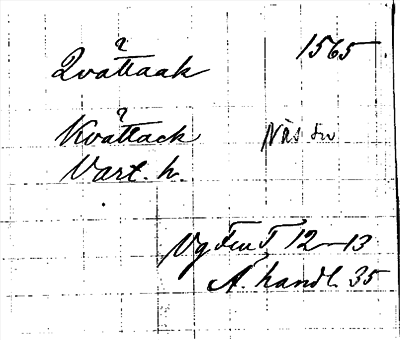 Qvåttaak 1565
Kvåttack Näs sn
Vart. h.
Vg Fru T 12-13
A. handl. 35